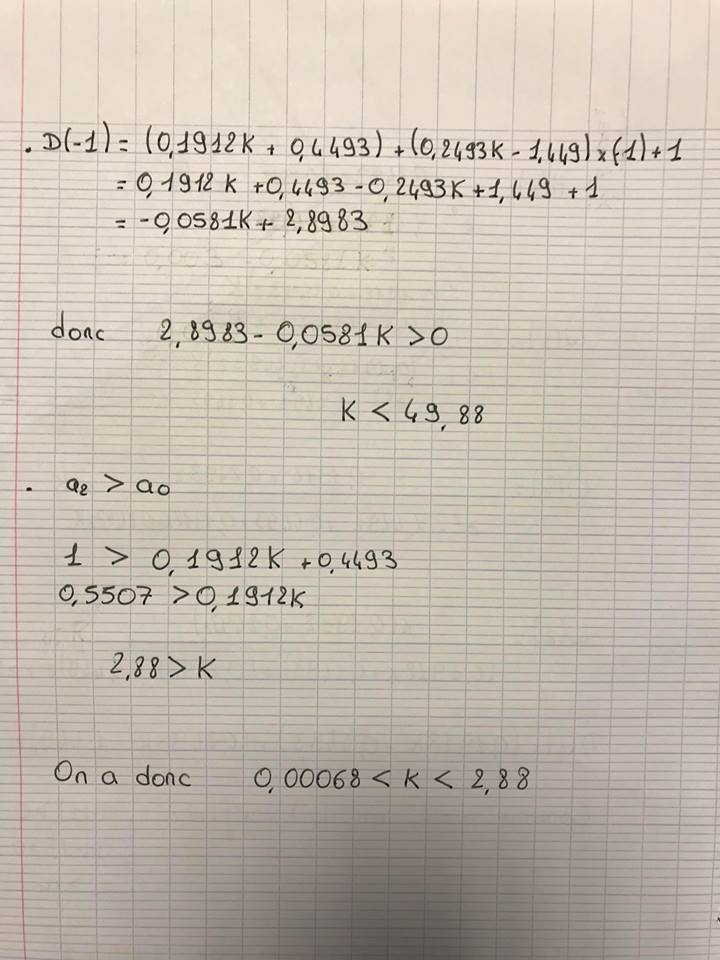 . D(-1) = (0,1912K + 0,4493) + (0,2493K - 1,449) × (-1) + 1
= 0,1912 K + 0,4493 - 0,2493K + 1,449 + 1
= -0,0581K + 2,8983
donc 2,8983 - 0,0581K > 0
K < 49,88
. a2 > a0
1 > 0,1912K + 0,4493
0,5507 > 0,1912K
2,88 > K
On a donc 0,00068 < K < 2,88